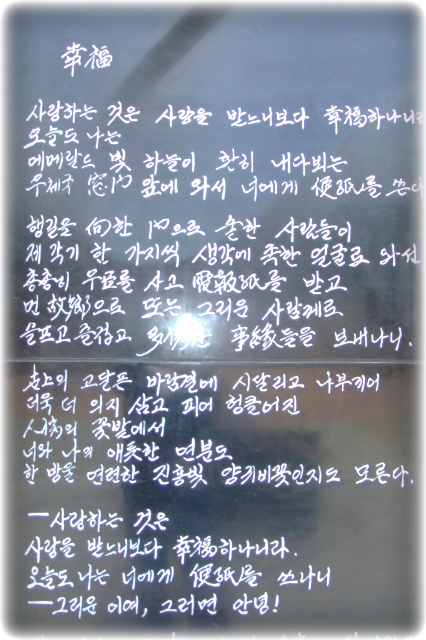 幸福
사랑하는 것은 사랑을 받느니보다 幸福하나니라
오늘도 나는
에메랄드 빛 하늘이 환히 내다뵈는
우체국 窓門 앞에 와서 너에게 便紙를 쓴다
행길을 向한 門으로 숱한 사람들이
제각기 한 가지씩 생각에 족한 얼굴로 와선
총총히 우표를 사고 電報紙를 받고
먼 故鄕으로 또는 그리운 사람께로
슬프고 즐겁고 多情한 事緣들을 보내나니.
세상의 고달픈 바람결에 시달리고 나부끼어
더욱 더 의지 삼고 피어 헝클어진
人情의 꽃밭에서
너와 나의 애틋한 연분도
한 방울 연련한 진홍빛 양귀비꽃인지도 모른다.
—사랑하는 것은
사랑을 받느니보다 幸福하나니라.
오늘도 나는 너에게 便紙를 쓰나니
—그리운 이여, 그러면 안녕!